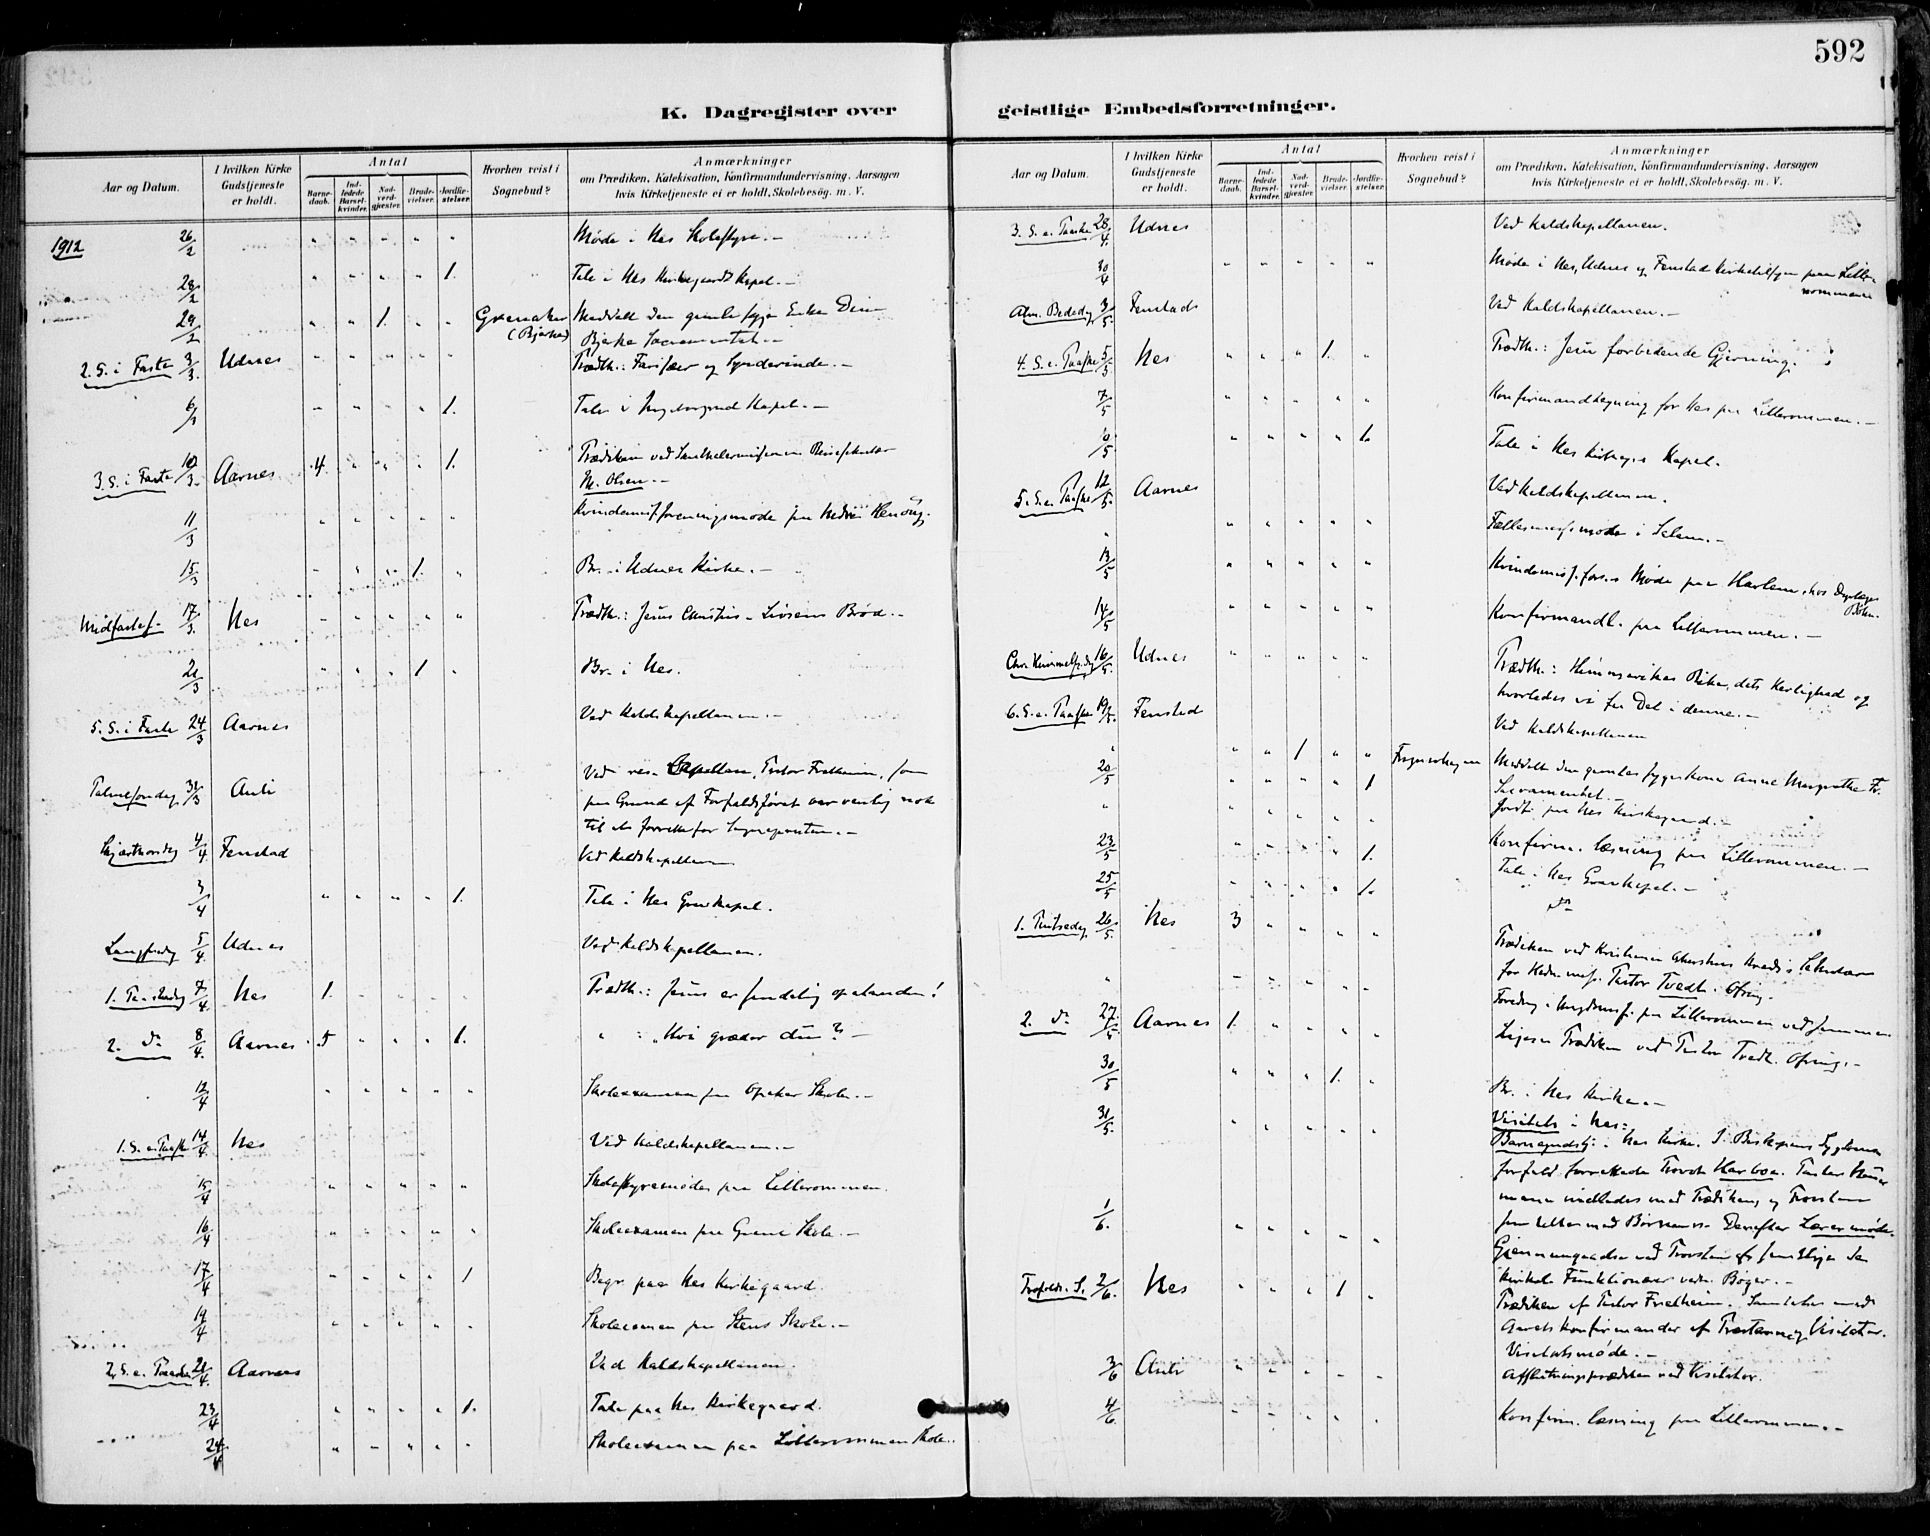 592
K. Dagregister over geistlige Embedsforretninger.
Aar og Datum.
I hvilken Kirke Gudstjeneste er holdt.
Antal
Barnedaab.
Indledede Barselkvinder.
Nadverdgjæster.
Brudevielser.
Jordfæstelser.
Hvorhen reist i Sognebud?
Anmærkninger
om Prædiken, Katekisation, Konfirmandundervisning, Aarsagen
hvis Kirketjeneste ei er holdt, Skolebesøg. m. V.
1912 26/2 " " " " " Møde i Nes Skolestyre. –
28/2 " " " " 1. Tale i Nes Kirkegaards Kapel. –
29/2 " " 1. " " Grønaker (Bjerke) Meddelt den gamle syge Enke
Bjerke Sacramentet. –
2. S. i Faste 3/3. Udnes " " " " " Prædth.: Farisæer og Synderinde. –
6/3 " " " " 1. Tale i Kapel. –
3. S. i Faste 10/3. Aarnes 4. " " " 1. Prædiken ved
M. Olsen. –
11/3 " " " " " Kvindemisf.foreningsmøde paa
15/3 " " " 1. " Br. i Udnes Kirke. –
Midfastes. 17/3. Nes " " " " " Prædth.: Jesus Christus – Livsens Brød. –
21/3 " " " 1 " Br. i Nes.
5. S. i Faste 24/3 Aarnes Ved Kaldskapellanen. –
Palmesøndag 31/3 Auli Ved res. Kapellan, Pastor Fretheim, som
paa Grund af Forfaldsføret var venlig nok
til at forrette for Sogneprosten. –
Skjærthorsdag 4/4. Fenstad Ved Kaldskapellanen
3/4 " " " " 1. Tale i Nes Gravkapel.
Langfredag 5/4. Udnes Ved Kaldskapellanen.
1. Paaskedag 7/4. Nes 1. " " " " Prædth.: Jesus er sandelig opstanden!
2. do 8/4. Aarnes 5 " " " 1. " : "Hvi græder du?" –
12/4 " " " " " Skoleexamen paa Opaker Skole. –
1. S. e. Paaske 14/4. Nes Ved Kaldskapellanen. –
15/4 " " " " " Skolestyremøde paa Lillerommen.
16/4 " " " " " Skoleexamen paa Skole. –
17/4 " " " " 1 Begr. paa Nes Kirkegaard.
19/4 " " " " " Skoleexamen paa Stens Skole. –
2. S. e. Paaske 21/4. Aarnes Ved Kaldskapellanen.
23/4 " " " " 1. Tale paa Nes Kirkegaard.
24/4 " " " " " Skoleexamen paa Lillerommen Skole. –
Aar og Datum.
I hvilken Kirke Gudstjeneste er holdt.
Antal
Barnedaab.
Indledede Barselkvinder.
Nadverdgjæster.
Brudevielser.
Jordfæstelser.
Hvorhen reist i Sognebud?
Anmærkninger
om Prædiken, Katekisation, Konfirmandundervisning, Aarsagen
hvis Kirketjeneste ei er holdt, Skolebesøg. m. V.
3. S. e. Paaske 28/4. Udnes Ved Kaldskapellanen.
30/4 " " " " " Møde i Nes, Udnes og Fenstad Kirketilsyn paa Lillerommen
Alm. Bededag 3/5. Fenstad Ved Kaldskapellanen. –
4. S. e. Paaske 5/5 Nes " " " 1. " Prædth.: Jesu forbedende Gjerning.
7/5 " " " " " Konfirmandlæsning for Nes paa Lillerommen. –
10/5 " " " " 1. Tale i Nes Kirkeg.s Kapel.
5. S. e. Paaske 12/5. Aarnes Ved Kaldskapellanen.
" " " " " " Fællesmøde i Salem. –
13/5 " " " " " Kvindemisf.for.s Møde paa Harlem, hos
14/5 " " " " " Konfirmandl. paa Lillerommen. –
Chr. Himmelfartsdag 16/5. Udnes " " " " " Prædth.: Himmerikes Rike, dets Herlighed og
hvorledes vi faa Del i denne. –
6. S. e. Paaske 19/5. Fenstad Ved Kaldskapellanen
" " " 1 " " Meddelt den gamle syge Kone Anne Margrethe
Sacramentet. –
20/5 " " " " 1 Jordf. paa Nes Kirkegaard. –
" " " " " " Konfirm. læsning paa Lillerommen. –
23/5 " " " " 1. Tale i Nes Gravkapel. –
25/5 " " " " 1. " do
1. Pintsedag 26/5. Nes 3 " " " " Prædiken ved Sekretær
for Hedn.misf. Pastor Tvedt. Ofring.
" " " " " " Foredrag i paa Lillerommen ved samme
2. do 27/5 Aarnes 1. " " " " Ligesaa Prædiken ved Pastor Tvedt. Ofring. –
30/5 " " " 1. " Br. i Nes Kirke. –
31/5. " " " " " Visitats i Nes:
Nes Kirke. I Biskopens Sygdoms
forfald forrettede Provst Harboe. Pastor
indlededes med Prædiken, og Provsten
Børnene. Derefter Lærermøde.
1/6. " " " " " Gjennemgaaelse ved Provsten af
kirkelige Funktionærer vedr. Bøger. –
Trefoldh. S. 2/6. Nes " " " 1 " Prædiken af Pastor Fretheim. Samtale med
Aarets Konfirmander af Præsten og Visitator.
Visitatsmøde. –
3/6 Auli " " " " " Afslutningsprædiken ved Visitator.
4/6. " " " " " Konfirm. læsning paa Lillerommen. –